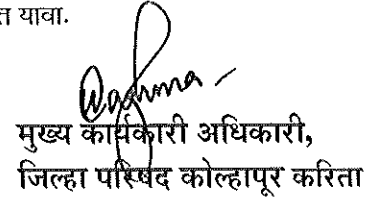 त यावा.
मुख्य कार्यकारी अधिकारी,
जिल्हा परिषद कोल्हापूर करिता